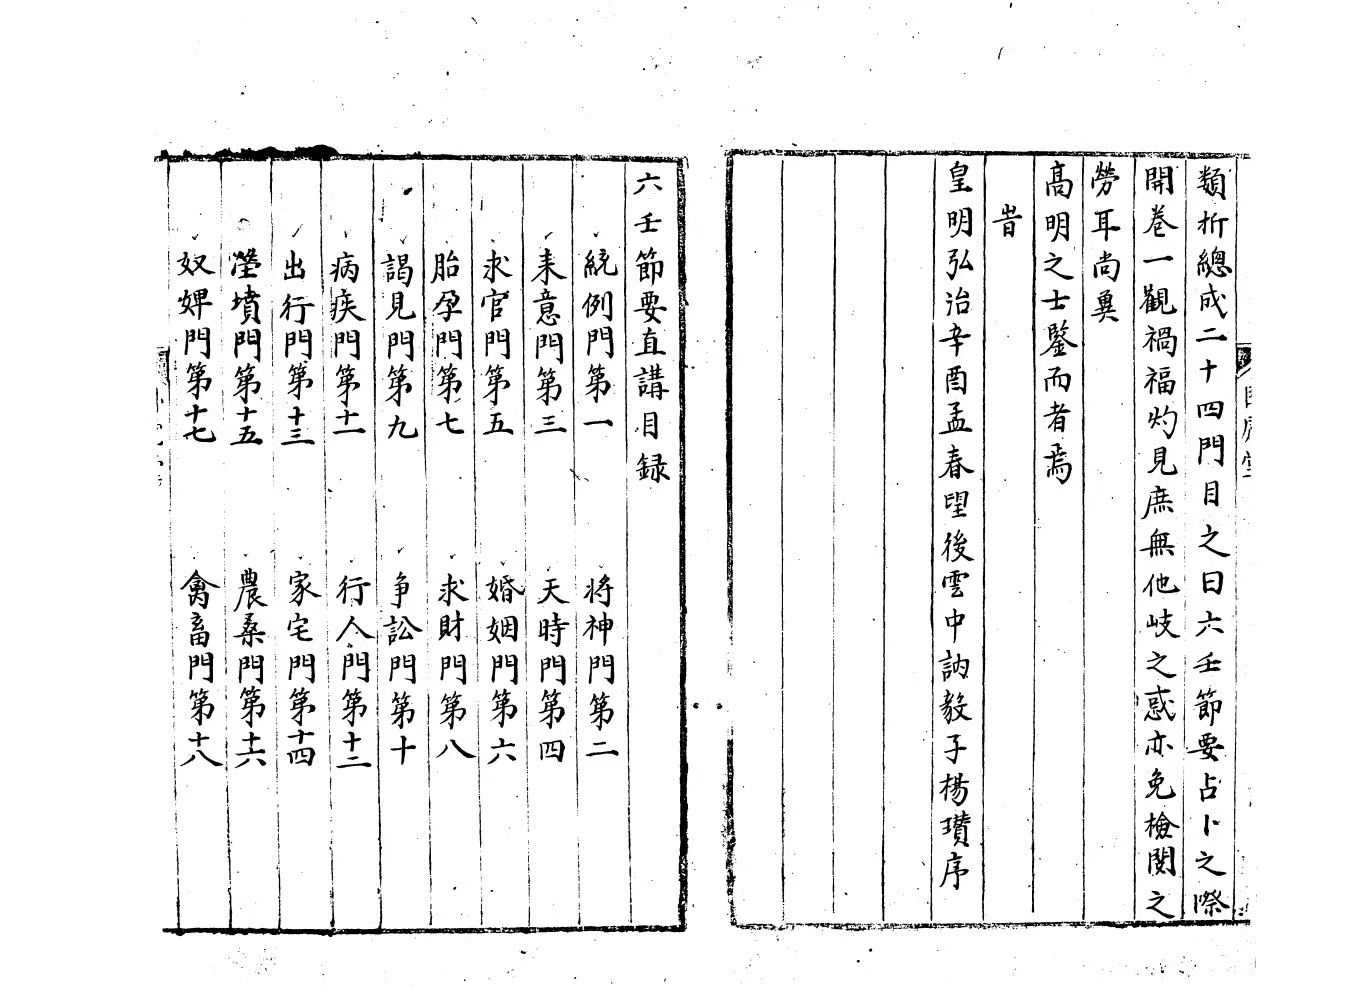 類折總成二十四門目之曰六壬節要占卜之際
開卷一觀禍福灼見庶無他岐之惑亦免檢閱之
勞耳尚冀
高明之士鑒而者焉
旹
皇明弘治辛酉孟春望後雲中訥毅子楊瓚序
六壬節要直講目録
統例門第一
將神門第二
耒意門第三
天時門第四
求官門第五
婚姻門第六
胎孕門第七
求財門第八
謁見門第九
争訟門第十
病疾門第十一
行人門第十二
出行門第十三
家宅門第十四
塋墳門第十五
農桑門第十六
奴婢門第十七
禽畜門第十八